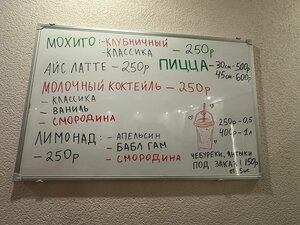 МОХИТО: - КЛУБНИЧНЫЙ
- КЛАССИКА - 250р
АЙС ЛАТТЕ - 250р
ПИЦЦА - 30см - 500р
45см - 600р
МОЛОЧНЫЙ КОКТЕЙЛЬ - 250р
- КЛАССИКА
- ВАНИЛЬ
- СМОРОДИНА
ЛИМОНАД: - АПЕЛЬСИН
- БАБЛ ГАМ
- СМОРОДИНА
- 250р
250р - 0,5
400р - 1л
ЧЕБУРЕКИ, ЯНТЫКИ
ПОД ЗАКАЗ! 150р